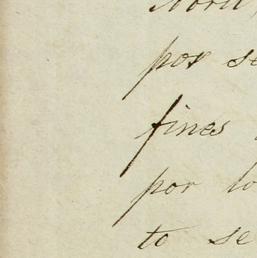 por se
fines
por lo
to se